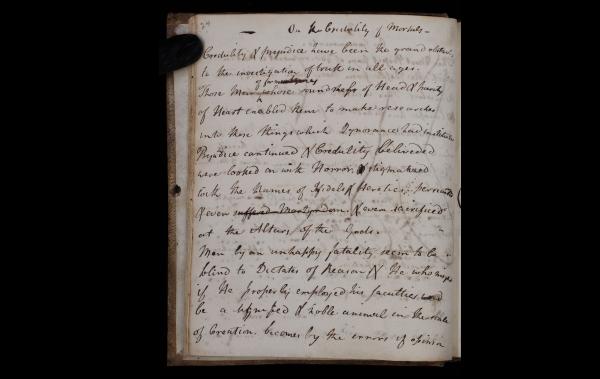 On the Credulity of Mortals -
Credulity & prejudice have been the grand
to the investigation of truth in all ages.
of former ages
Those Men whose soundness of Head & purity
of Heart enabled them to make researches
into those things which Ignorance had instituted
Prejudice continued & Credulity believeded
were looked on with Horror, stigmatized
with the Names of Infidels & Heretics, persecuted
& even suffered Martyrdom. & even sacrificed
at the Altars of the Gods.
Man by an unhappy fatality seem to be
blind to Dictates of Reason & He who might
if He properly employed his faculties
be a dignified & noble animal in the scale
of Creation. becomes by the errors of opinion